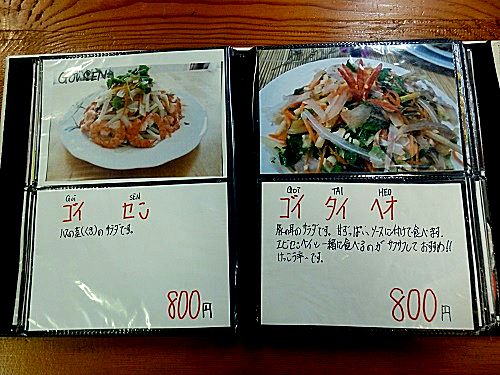 GOI SEN
GOI SEN
ゴイ セン
ハスの茎(くき)のサラダです。
800円
GOI TAI HEO
ゴイ タイ ヘオ
豚の耳のサラダです。甘ずっぱい、ソースに付けて食べます。
エビセンベイと一緒に食べるのがサクサクしておすすめ!!
けっこう辛〜です。
800円